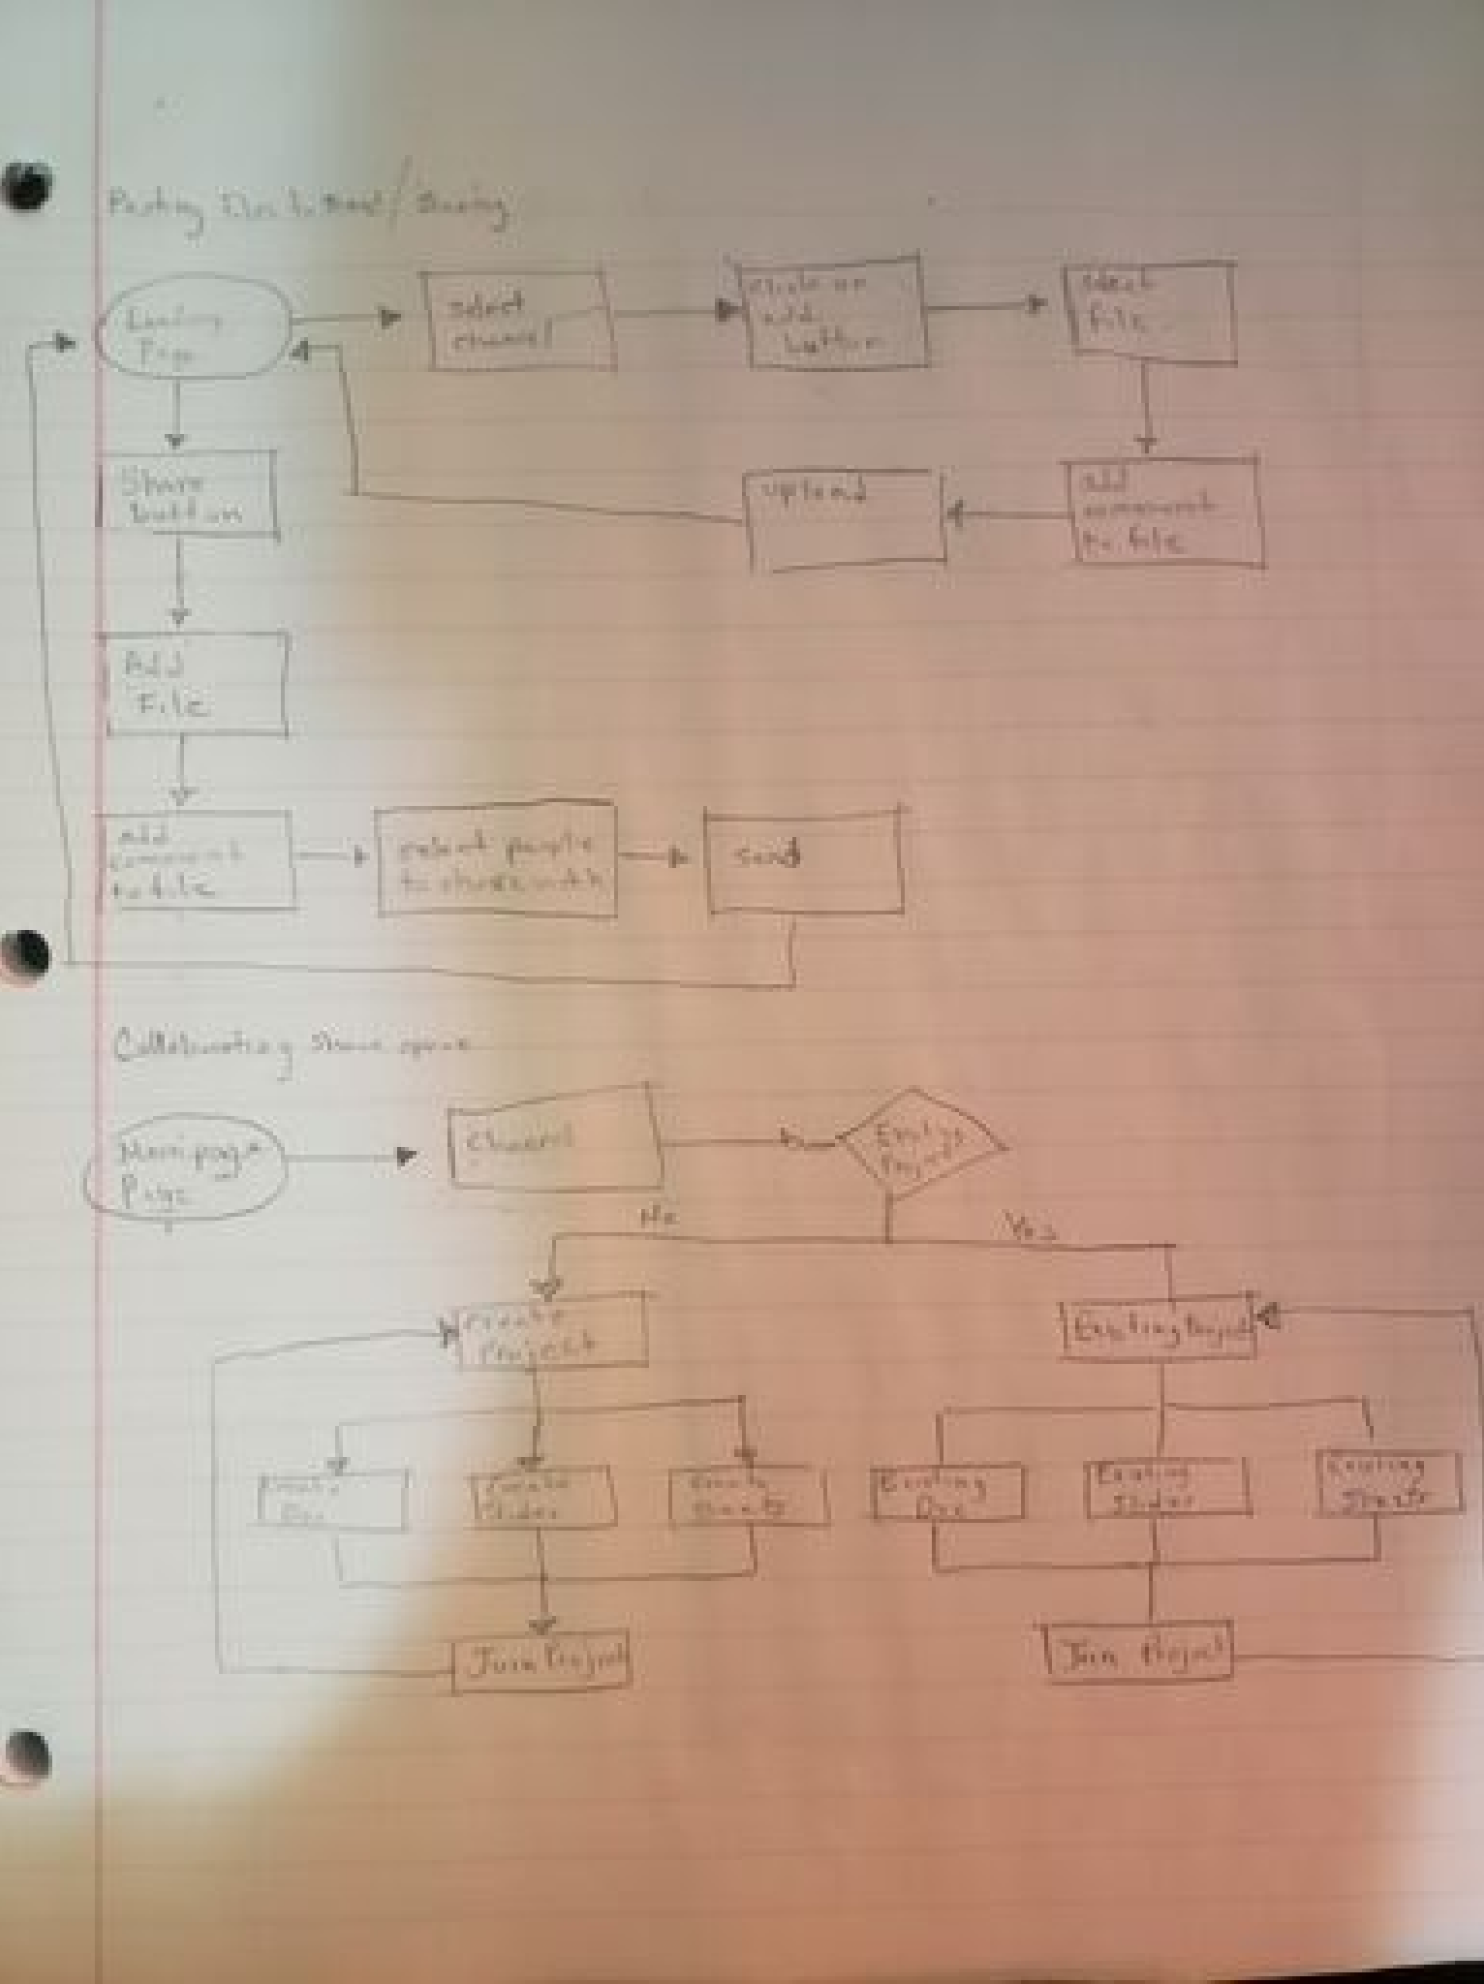 Sharing
Landing
Page
select
channel
click on
add
button
select
file
Share
button
upload
add
comment
to file
Add
File
add
comment
to file
select people
to share with
send
Collaborating Share space
Page
Channel
No
Yes
create
Project
Existing Project
Create
Doc
Create
Slides
Create
Sheets
Existing
Doc
Existing
Slides
Existing
Sheets
Join Project
Join Project